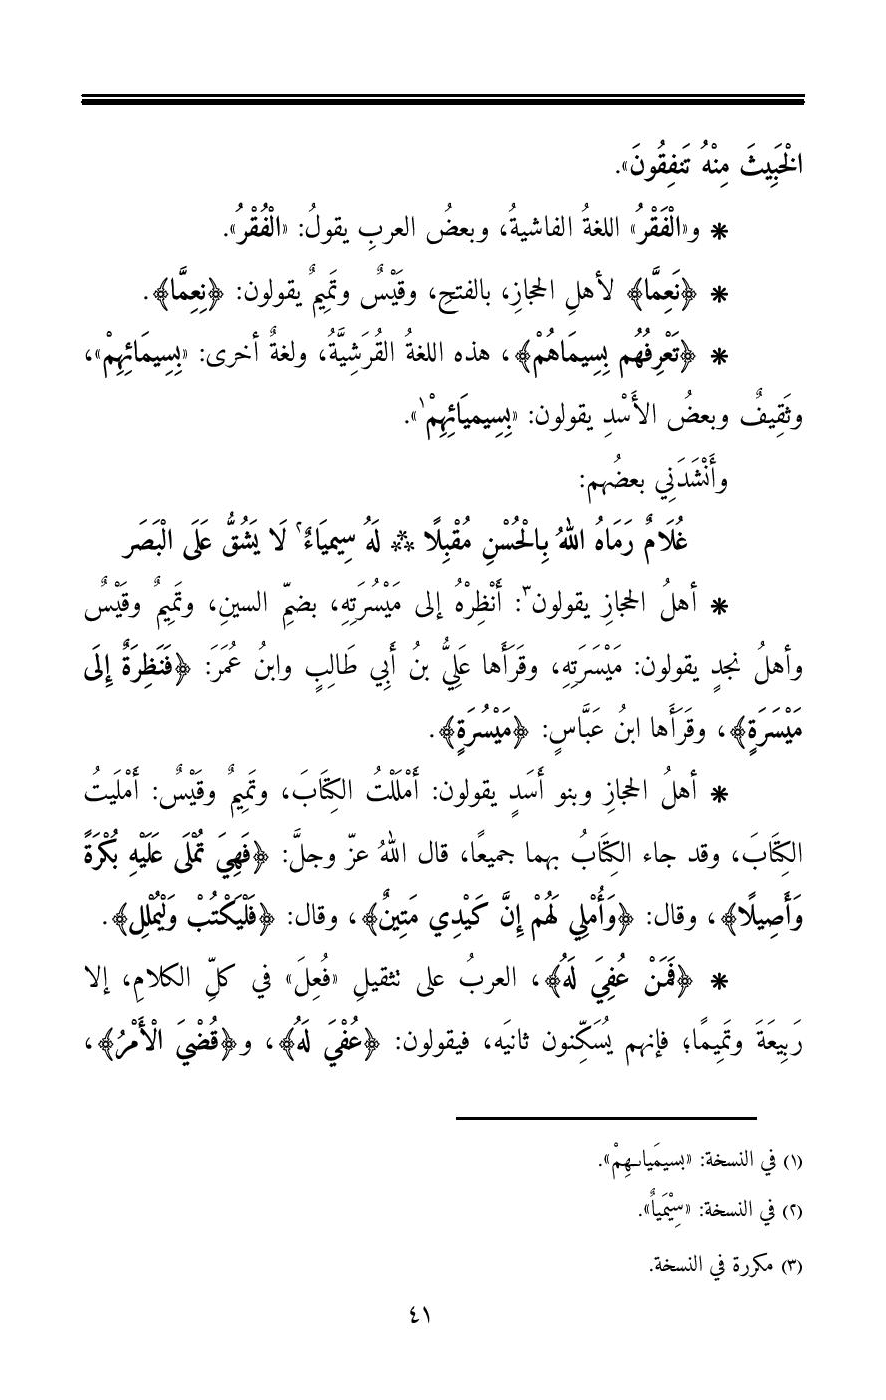 الْخَبِيثَ مِنْهُ تَنفِقُونَ».
* و«الْفَقْرُ» اللغةُ الفاشيةُ، وبعضُ العربِ يقولُ: «الْفُقْرُ».
* ﴿نَعِمَّا﴾ لأهلِ الحجازِ، بالفتحِ، وقَيْسٌ وتَمِيمٌ يقولون: ﴿نِعِمَّا﴾.
* ﴿تَعْرِفُهُم بِسِيمَاهُمْ﴾، هذه اللغةُ القُرَشِيَّةُ، ولغةٌ أخرى: «بِسِيمَائِهِمْ»،
وثَقِيفٌ وبعضُ الأَسْدِ يقولون: «بِسِيمِيَائِهِمْ١».
وأَنْشَدَنِي بعضُهم:
غُلَامٌ رَمَاهُ اللهُ بِالْحُسْنِ مُقْبِلًا ** لَهُ سِيمِيَاءٌ٢ لَا يَشُقُّ عَلَى الْبَصَر
* أهلُ الحجازِ يقولون٣: أَنْظِرْهُ إلى مَيْسُرَتِهِ، بضمِّ السينِ، وتَمِيمٌ وقَيْسٌ
وأهلُ نجدٍ يقولون: مَيْسَرَتِهِ، وقَرَأَها عَلِيُّ بنُ أَبِي طَالِبٍ وابنُ عُمَرَ: ﴿فَنَظِرَةٌ إِلَى
مَيْسَرَةٍ﴾، وقَرَأَها ابنُ عَبَّاسٍ: ﴿مَيْسُرَةٍ﴾.
* أهلُ الحجازِ وبنو أَسَدٍ يقولون: أَمْلَلْتُ الكِتَابَ، وتَمِيمٌ وقَيْسٌ: أَمْلَيتُ
الكِتَابَ، وقد جاء الكِتَابُ بهما جميعًا، قال اللهُ عزّ وجلَّ: ﴿فَهِيَ تُمْلَى عَلَيْهِ بُكْرَةً
وَأَصِيلًا﴾، وقال: ﴿وَأُمْلِي لَهُمْ إِنَّ كَيْدِي مَتِينٌ﴾، وقال: ﴿فَلْيَكْتُبْ وَلْيُمْلِلِ﴾.
* ﴿فَمَنْ عُفِيَ لَهُ﴾، العربُ على تثقيلِ «فُعِلَ» في كلِّ الكلامِ، إلا
رَبِيعَةَ وتَمِيمًا؛ فإنهم يُسَكِّنون ثانيَه، فيقولون: ﴿عُفْيَ لَهُ﴾، و﴿قُضْيَ الْأَمْرُ﴾،
(١) في النسخة: «بسيمَيائـهِمْ».
(٢) في النسخة: «سِيْمَياٌ».
(٣) مكررة في النسخة.
٤١